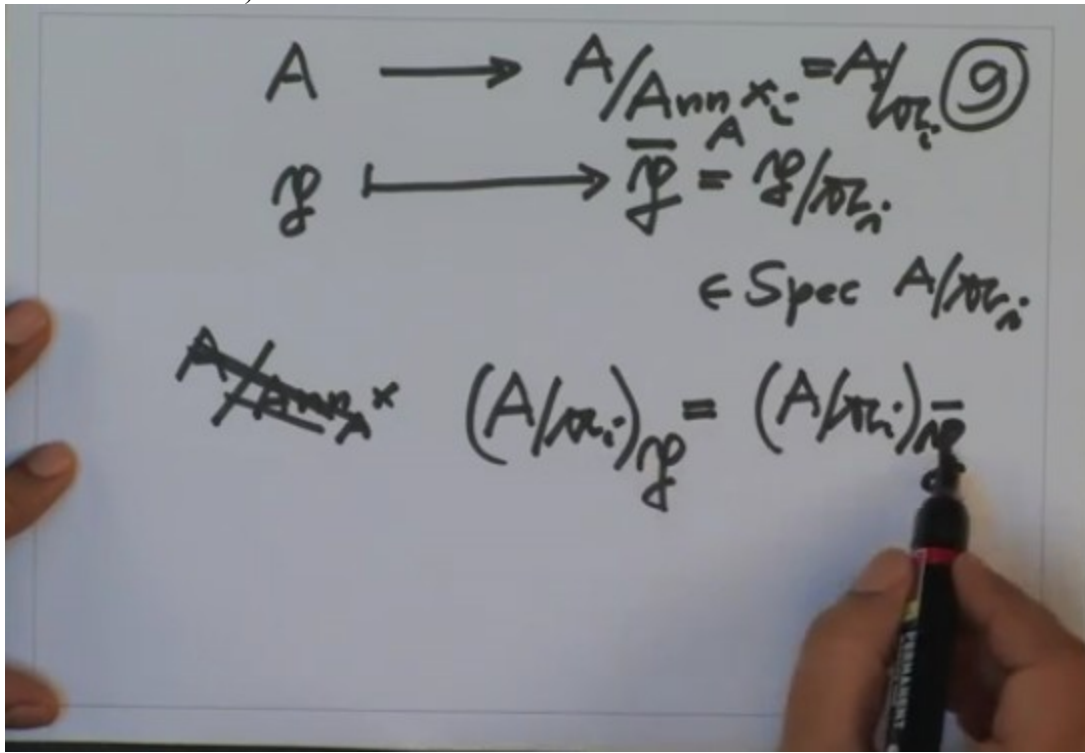 A ⟶ A/Ann_A x_i = A/𝔞_i ⑨
𝔭 ⟼ 𝔭̄ = 𝔭/𝔞_i
∈ Spec A/𝔞_i
(A/𝔞_i)_𝔭 = (A/𝔞_i)_𝔭̄
PERMANENT